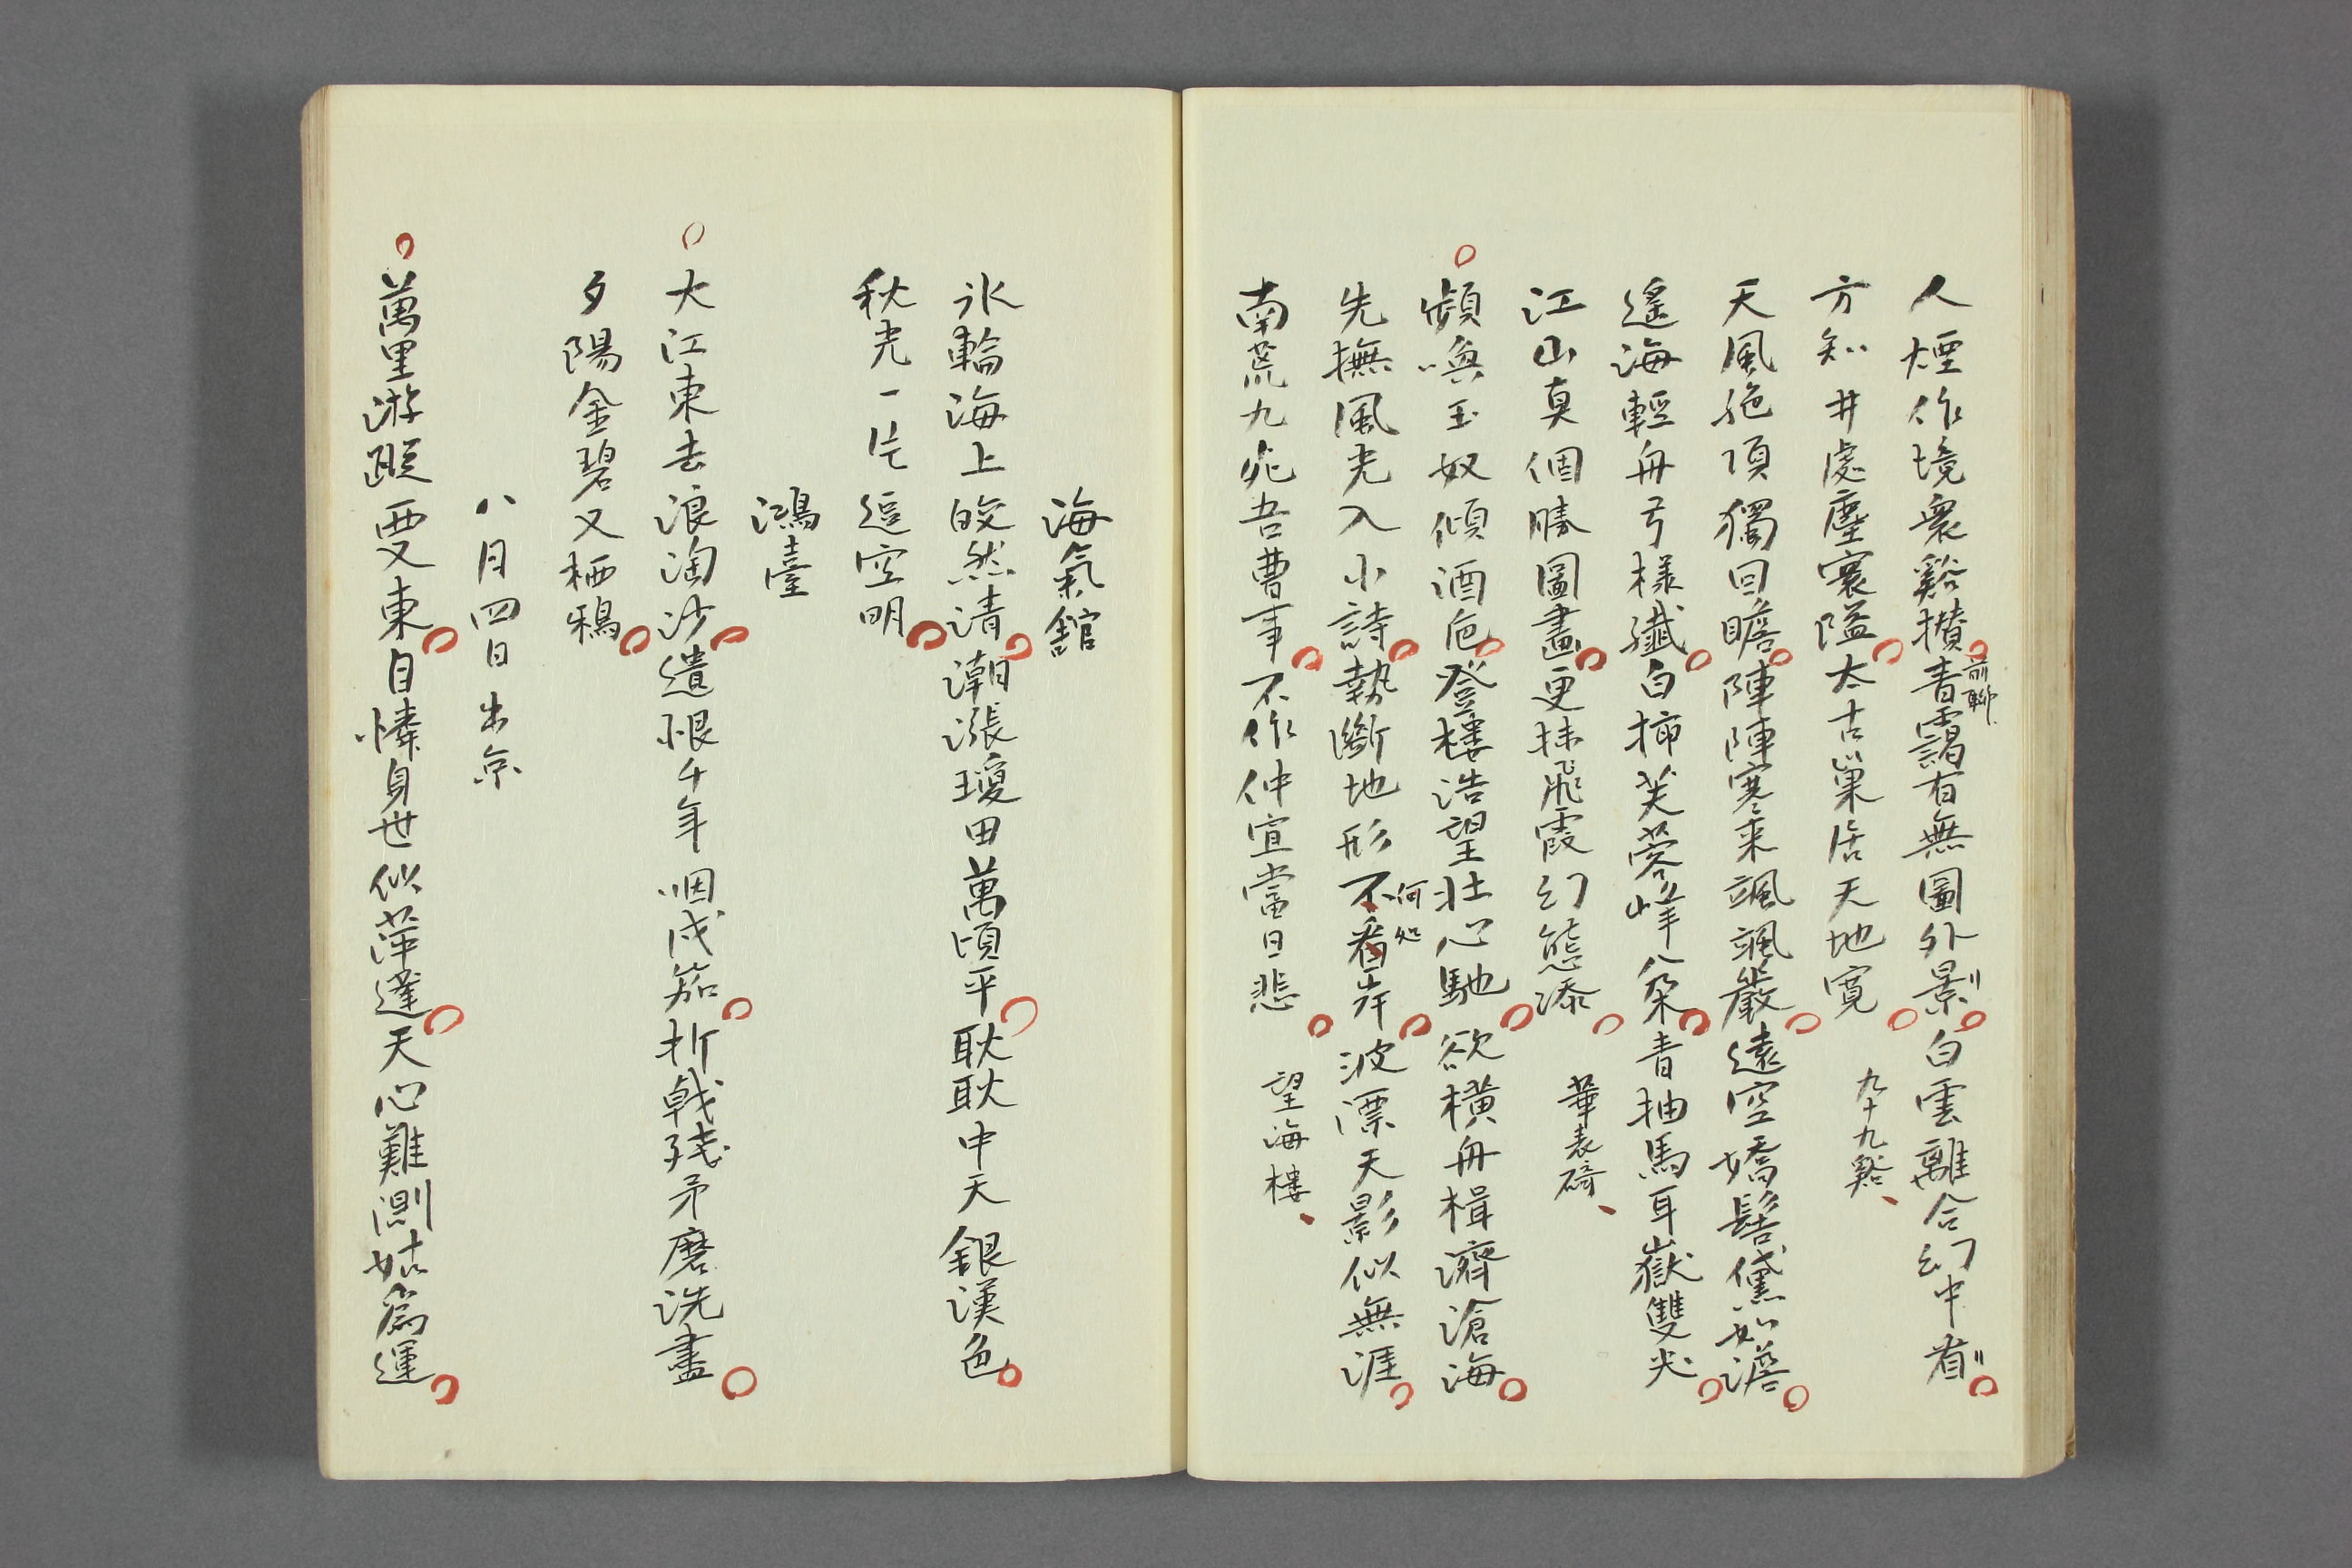 人煙作境衆谿攅青靄有無圖外景白雲離合幻中看
前聯
方知井處塵寰隘太古巢居天地寛 九十九谿
天風絶頂獨回瞻陣陣寒来颯颯嚴遠空嬌髻黛如澹
遥海輕舟弓様纎白挿芙蓉峰八朶青抽馬耳嶽雙尖
江山真個勝圖畫更抹飛霞幻態添 華表
頻喚玉奴傾酒巵登樓浩望壮心馳欲横舟楫濟滄海
先撫風光入小詩勢斷地形不看岸波漂天影似無涯
何処
南荒九死吾曹事不作仲宣當日悲 望海樓
海氣舘
氷輪海上皎然清潮漲瓊田萬頃平耿耿中天銀漢色
秋光一片逗空明
鴻臺
大江東去浪淘沙遺恨千年咽戍笳折戟残矛磨洗盡
夕陽金碧又栖鴉
八月四日出京
萬里游蹤西又東自憐身世似萍蓬天心難測姑為運